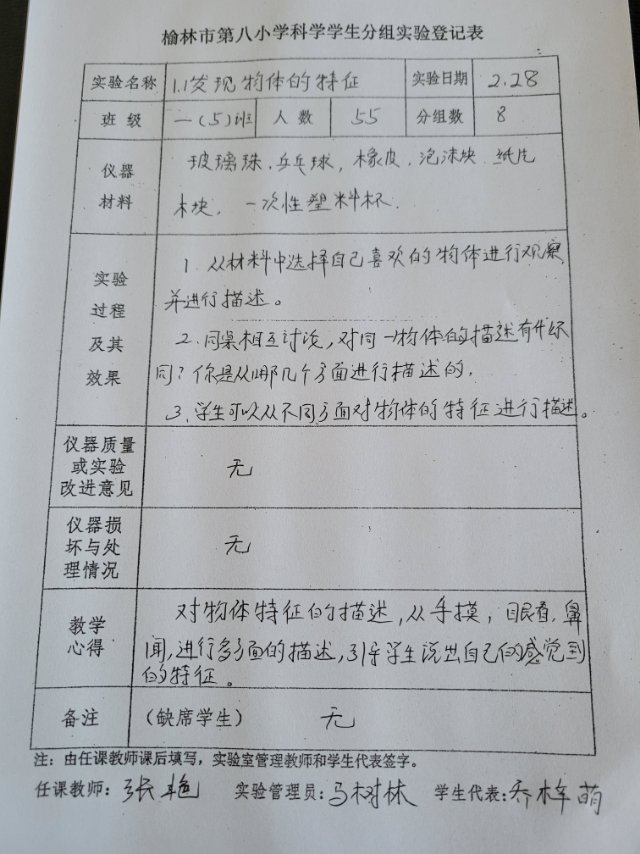 榆林市第八小学科学学生分组实验登记表
实验名称 1.1发现物体的特征 实验日期 2.28
班级 一(5)班 人数 55 分组数 8
仪器 玻璃珠、乒乓球，橡皮，泡沫块、纸片
材料 木块、一次性塑料杯.
实验 1、从材料中选择自己喜欢的物体进行观察,
过程 并进行描述。
及其 2.同桌相互讨论，对同一物体的描述有什么不
效果 同？你是从哪几个方面进行描述的.
3.学生可以从不同方面对物体的特征进行描述。
仪器质量
或实验 无
改进意见
仪器损
坏与处 无
理情况
教学 对物体特征的描述，从手摸，目艮看，鼻
心得 闻，进行多方面的描述，引导学生说出自己的感觉到
的特征。
备注 (缺席学生) 无
注：由任课教师课后填写，实验室管理教师和学生代表签字。
任课教师：张艳 实验管理员：马树林 学生代表：乔梓萌